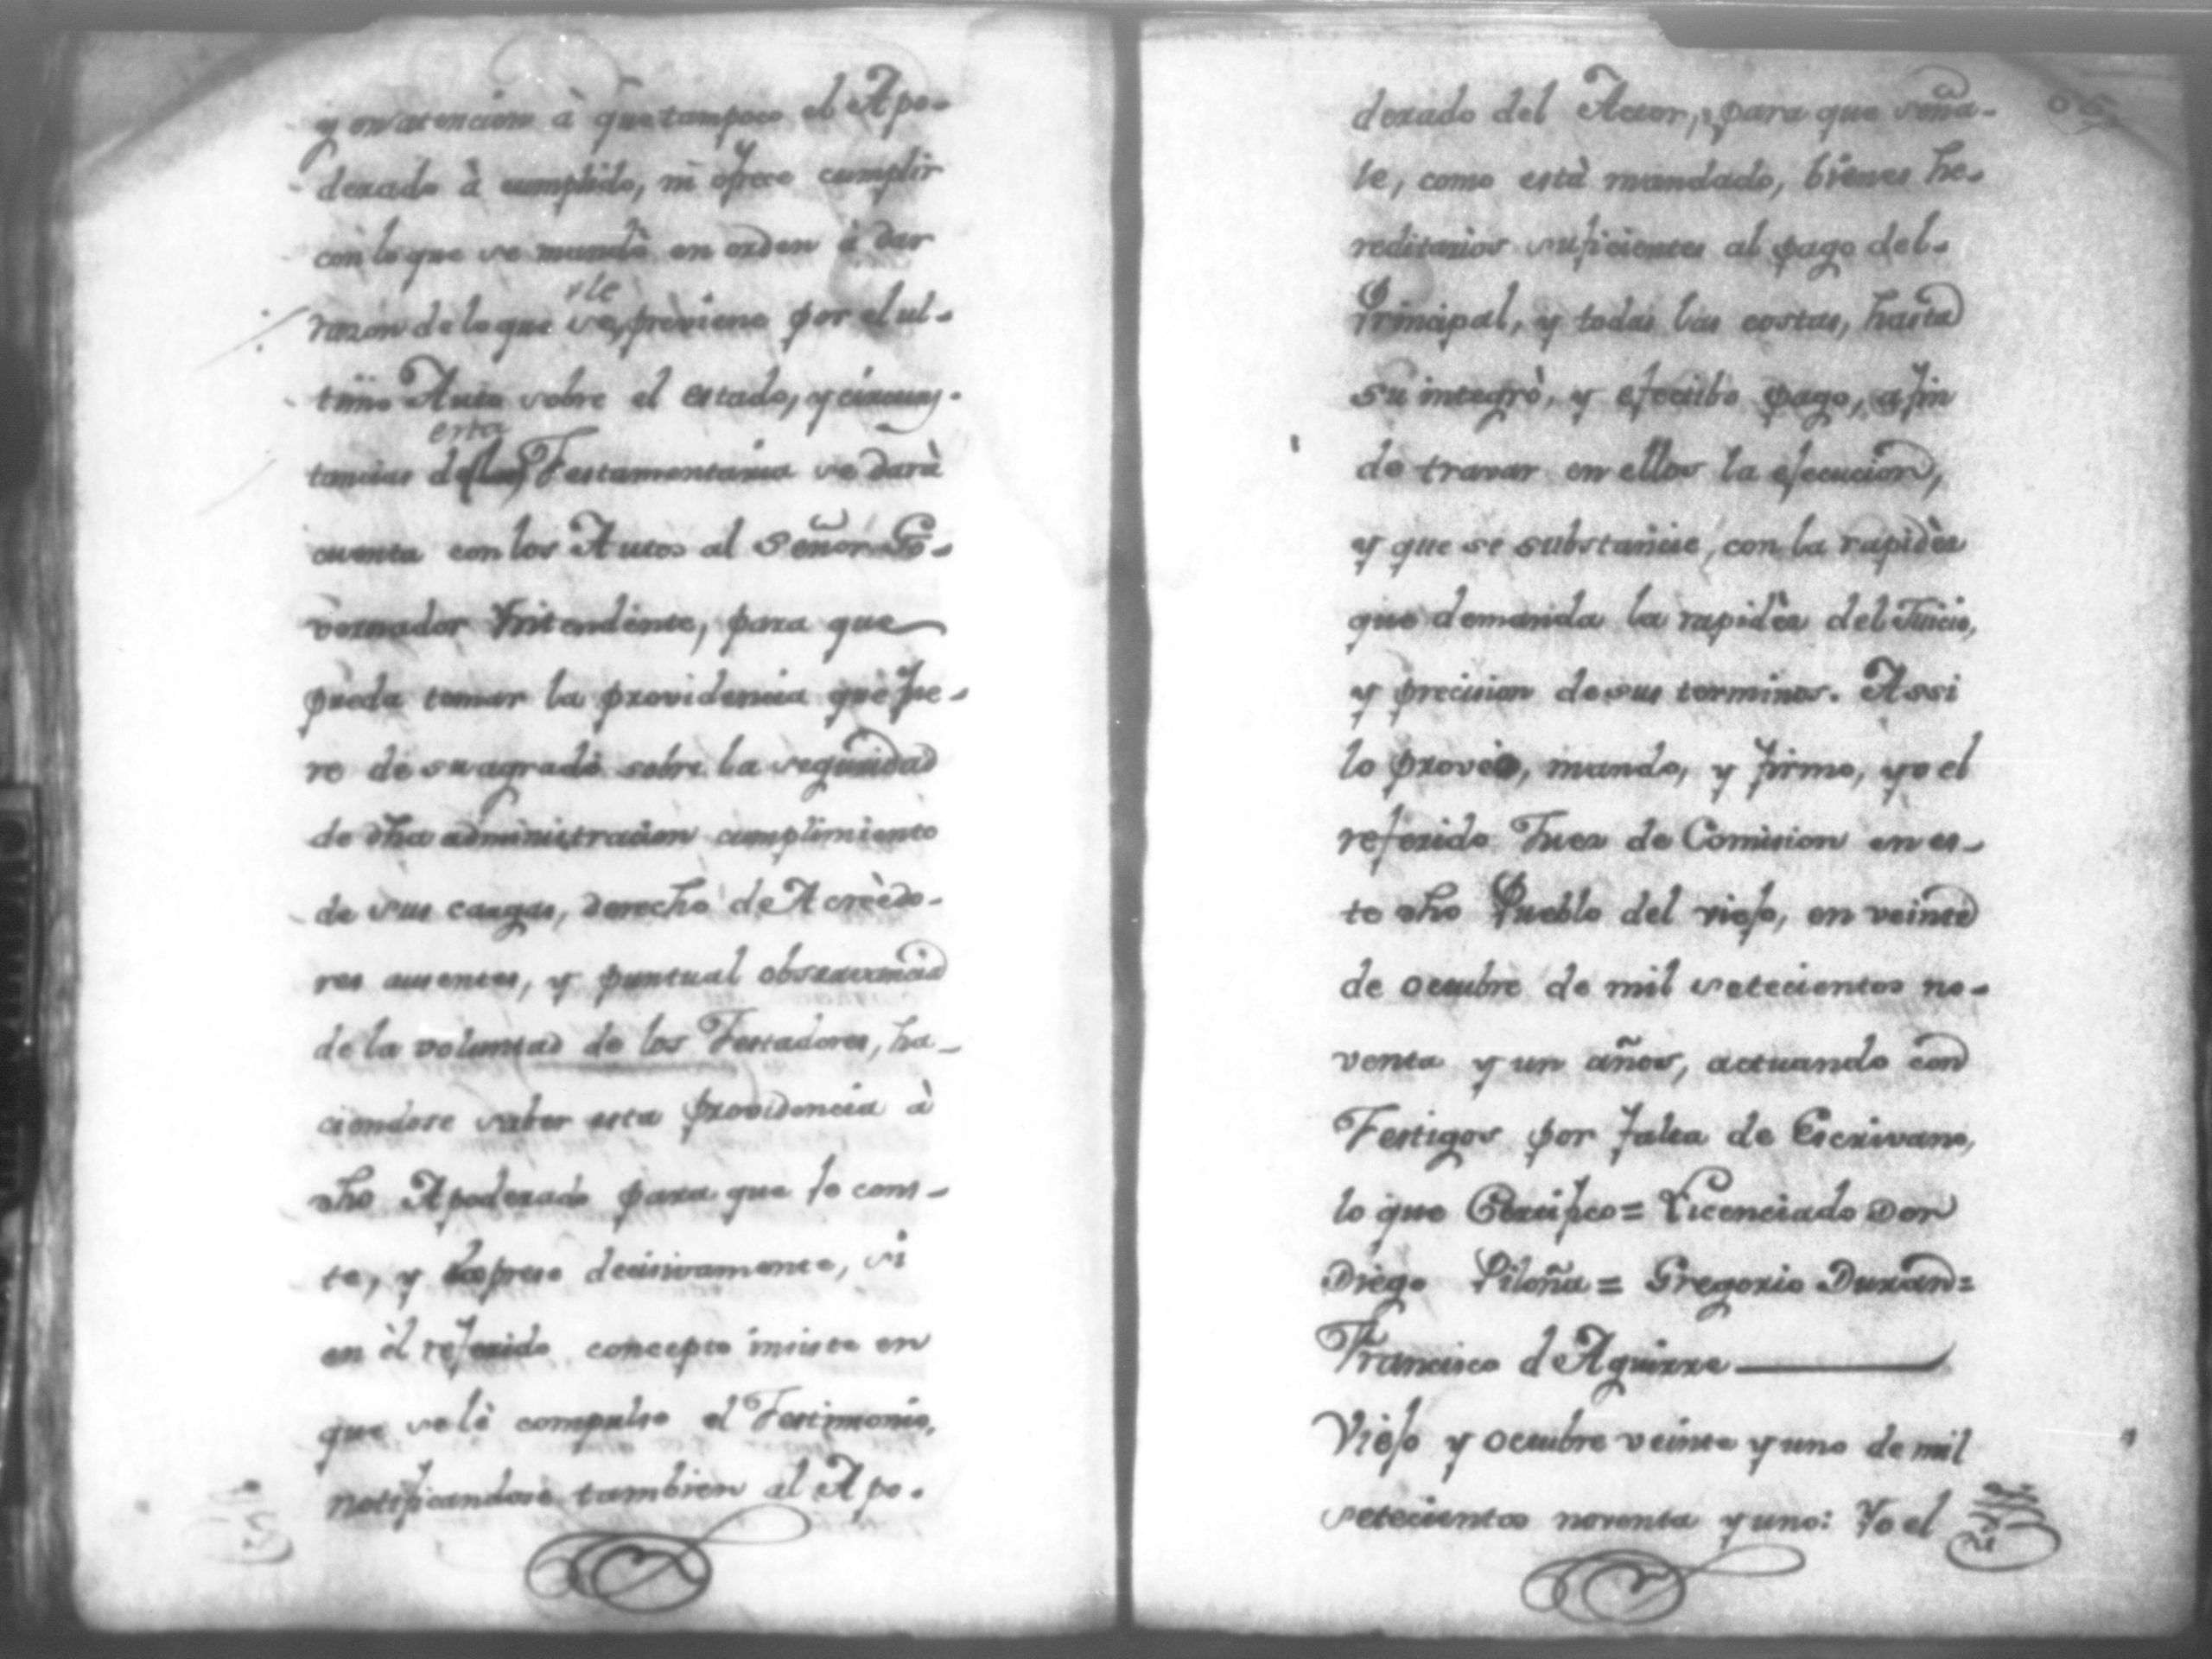 y en atencion à que tampoco el Apo-
derado à cumplido, ni ofrece cumplir
con lo que se mandò en orden à dar
razon de lo que se le previene por el ul-
timo Auto sobre el estado, y circuns-
tancias de esta Testamentaria se darà
cuenta con los Autos al Señor Go-
vernador Yntendente, para que
pueda tomar la providencia que fue-
re de su agrado sobre la seguridad
de dha administracion cumplimiento
de sus cargas, derecho de Acreèdo-
res ausentes, y puntual observancia
de la voluntad de los Testadores, ha-
ciendose saber esta providencia à
dho Apoderado para que le cons-
te, y exprese decisivamente, si
en èl referido concepto insiste en
que se lè compulse el Testimonio,
notificandose tambien al Apo-
derado del Actor, para que seña-
le, como està mandado, bienes he-
reditarios suficientes al pago del
Principal, y todas las costas, hasta
su integrò, y efectibo pago, a fin
de travar en ellos la ejecucion,
y que se substancie, con la rapidèz
que demanda la rapidèz del Juicio,
y precision de sus terminos. Assi
lo proveo, mando, y firmo, yo el
referido Juez de Comision en es-
te dho Pueblo del viejo, en veinte
de octubre de mil setecientos no-
venta y un años, actuando con
Testigos por falta de Escrivano,
lo que Certifico = Licenciado Don
Diego Piloña = Gregorio Duran =
Francisco de Aguirre
Viejo y octubre veinte y uno de mil
setecientos noventa y uno: Yo el